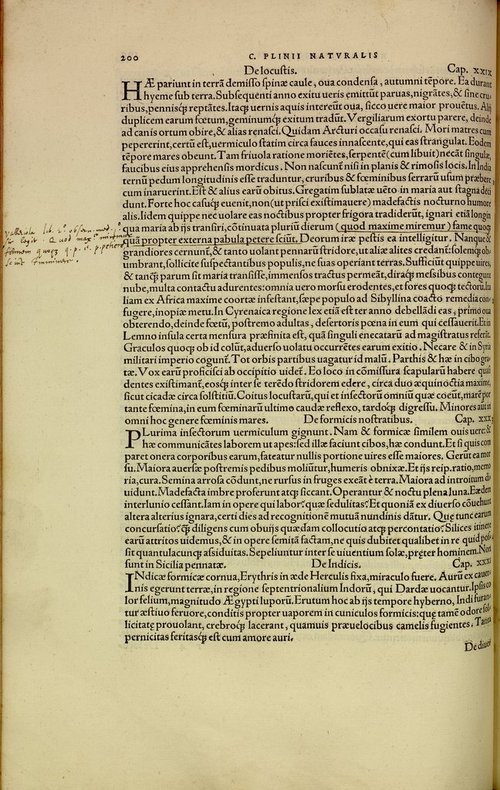 200 C. PLINII NATVRALIS
De locustis. Cap. XXIX
HÆ pariunt in terrā demisso spinæ caule, oua condensa, autumni tēpore. Ea durant
hyeme sub terra. Subsequenti anno exitu ueris emittūt paruas, nigrātes, & sine cru
ribus, pennisq; reptātes. Itaq; uernis aquis intereūt oua, sicco uere maior prouētus. Alij
duplicem earum fœtum, geminumq; exitum tradūt. Vergiliarum exortu parere, deinde
ad canis ortum obire, & alias renasci. Quidam Arcturi occasu renasci. Mori matres cum
pepererint, certū est, uermiculo statim circa fauces innascente, qui eas strangulat. Eodem
tēpore mares obeunt. Tam friuola ratione moriētes, serpentē (cum libuit) necāt singulæ,
faucibus eius apprehensis mordicus. Non nascunt nisi in planis & rimosis locis. In India
ternūm pedum longitudinis esse traduntur, cruribus & fœminibus serrarū usum præbere
cum inaruerint. Est & alius earū obitus. Gregatim sublatæ uēto in maria aut stagna deci
dunt. Forte hoc casuq; euenit, non (ut prisci existimauere) madefactis nocturno humore
alis. Iidem quippe nec uolare eas noctibus propter frigora tradiderūt, ignari etiā longin
qua maria ab ijs transiri, cōtinuata pluriū dierum (quod maxime miremur) fame quoq;
quā propter externa pabula petere sciūt. Deorum iræ pestis ea intelligitur. Nanque &
grandiores cernunt, & tanto uolant pennarū stridore, ut aliæ alites credant: solemq; ob
umbrant, sollicite suspectantibus populis, ne suas operiant terras. Sufficiūt quippe uires,
& tanq̃ parum sit maria transisse, immensos tractus permeāt, diraq; messibus contegunt
nube, multa contactu adurentes: omnia uero morsu erodentes, et fores quoq; tectorū. Ita
liam ex Africa maxime coortæ infestant, sæpe populo ad Sibyllina coacto remedia con
fugere, inopiæ metu. In Cyrenaica regione lex etiā est ter anno debellādi eas, primo oua
obterendo, deinde fœtū, postremo adultas, desertoris pœna in eum qui cessauerit. Et in
Lemno insula certa mensura præfinita est, quā singuli enecatarū ad magistratus referāt.
Graculos quoq; ob id colūt, aduerso uolatu occurrētes earum exitio. Necare & in Syria
militari imperio cogunt. Tot orbis partibus uagatur id malū. Parthis & hæ in cibo gra
tæ. Vox earū proficisci ab occipitio uidet. Eo loco in cōmissura scapularū habere quasi
dentes existimant, eosq; inter se terēdo stridorem edere, circa duo æquinoctia maxime,
sicut cicadæ circa solstitiū. Coitus locustarū, qui et insectorū omniū quæ coëūt, marē por
tante fœmina, in eum fœminarū ultimo caudæ reflexo, tardoq; digressu. Minores aūt in
omni hoc genere fœminis mares. De formicis nostratibus. Cap. XXX
PLurima insectorum uermiculum gignunt. Nam & formicæ similem ouis uere &
hæ communicātes laborem ut apes: sed illæ faciunt cibos, hæ condunt. Et si quis com
paret onera corporibus earum, fateatur nullis portione uires esse maiores. Gerūt ea mor
su. Maiora auersæ postremis pedibus moliūtur, humeris obnixæ. Et ijs reip. ratio, memo
ria, cura. Semina arrosa cōdunt, ne rursus in fruges exeāt è terra. Maiora ad introitum di
uidunt. Madefacta imbre proferunt atq; siccant. Operantur & noctu plena luna. Eædem
interlunio cessant. Iam in opere qui labor: quæ sedulitas: Et quoniā ex diuerso cōuehunt
altera alterius ignara, certi dies ad recognitionē mutuā nundinis dātur. Quę tunc earum
concursatio: q̃ diligens cum obuijs quædam collocutio atq; percontatio: Silices itinere
earū attritos uidemus, & in opere semitā factam, ne quis dubitet qualibet in re quid pos
sit quantulacunq; assiduitas. Sepeliuntur inter se uiuentium solæ, pręter hominem. Non
sunt in Sicilia pennatæ. De Indicis. Cap. XXXI
INdicæ formicæ cornua, Erythris in æde Herculis fixa, miraculo fuere. Aurū ex cauer
nis egerunt terræ, in regione septentrionalium Indorū, qui Dardæ uocantur. Ipsis co
lor felium, magnitudo Ægypti luporū. Erutum hoc ab ijs tempore hyberno, Indi furan
tur æstiuo feruore, conditis propter uaporem in cuniculos formicis: quę tamē odore sol
licitatę prouolant, crebroq; lacerant, quamuis præuelocibus camelis fugientes. Tanta
pernicitas feritasq; est cum amore auri.